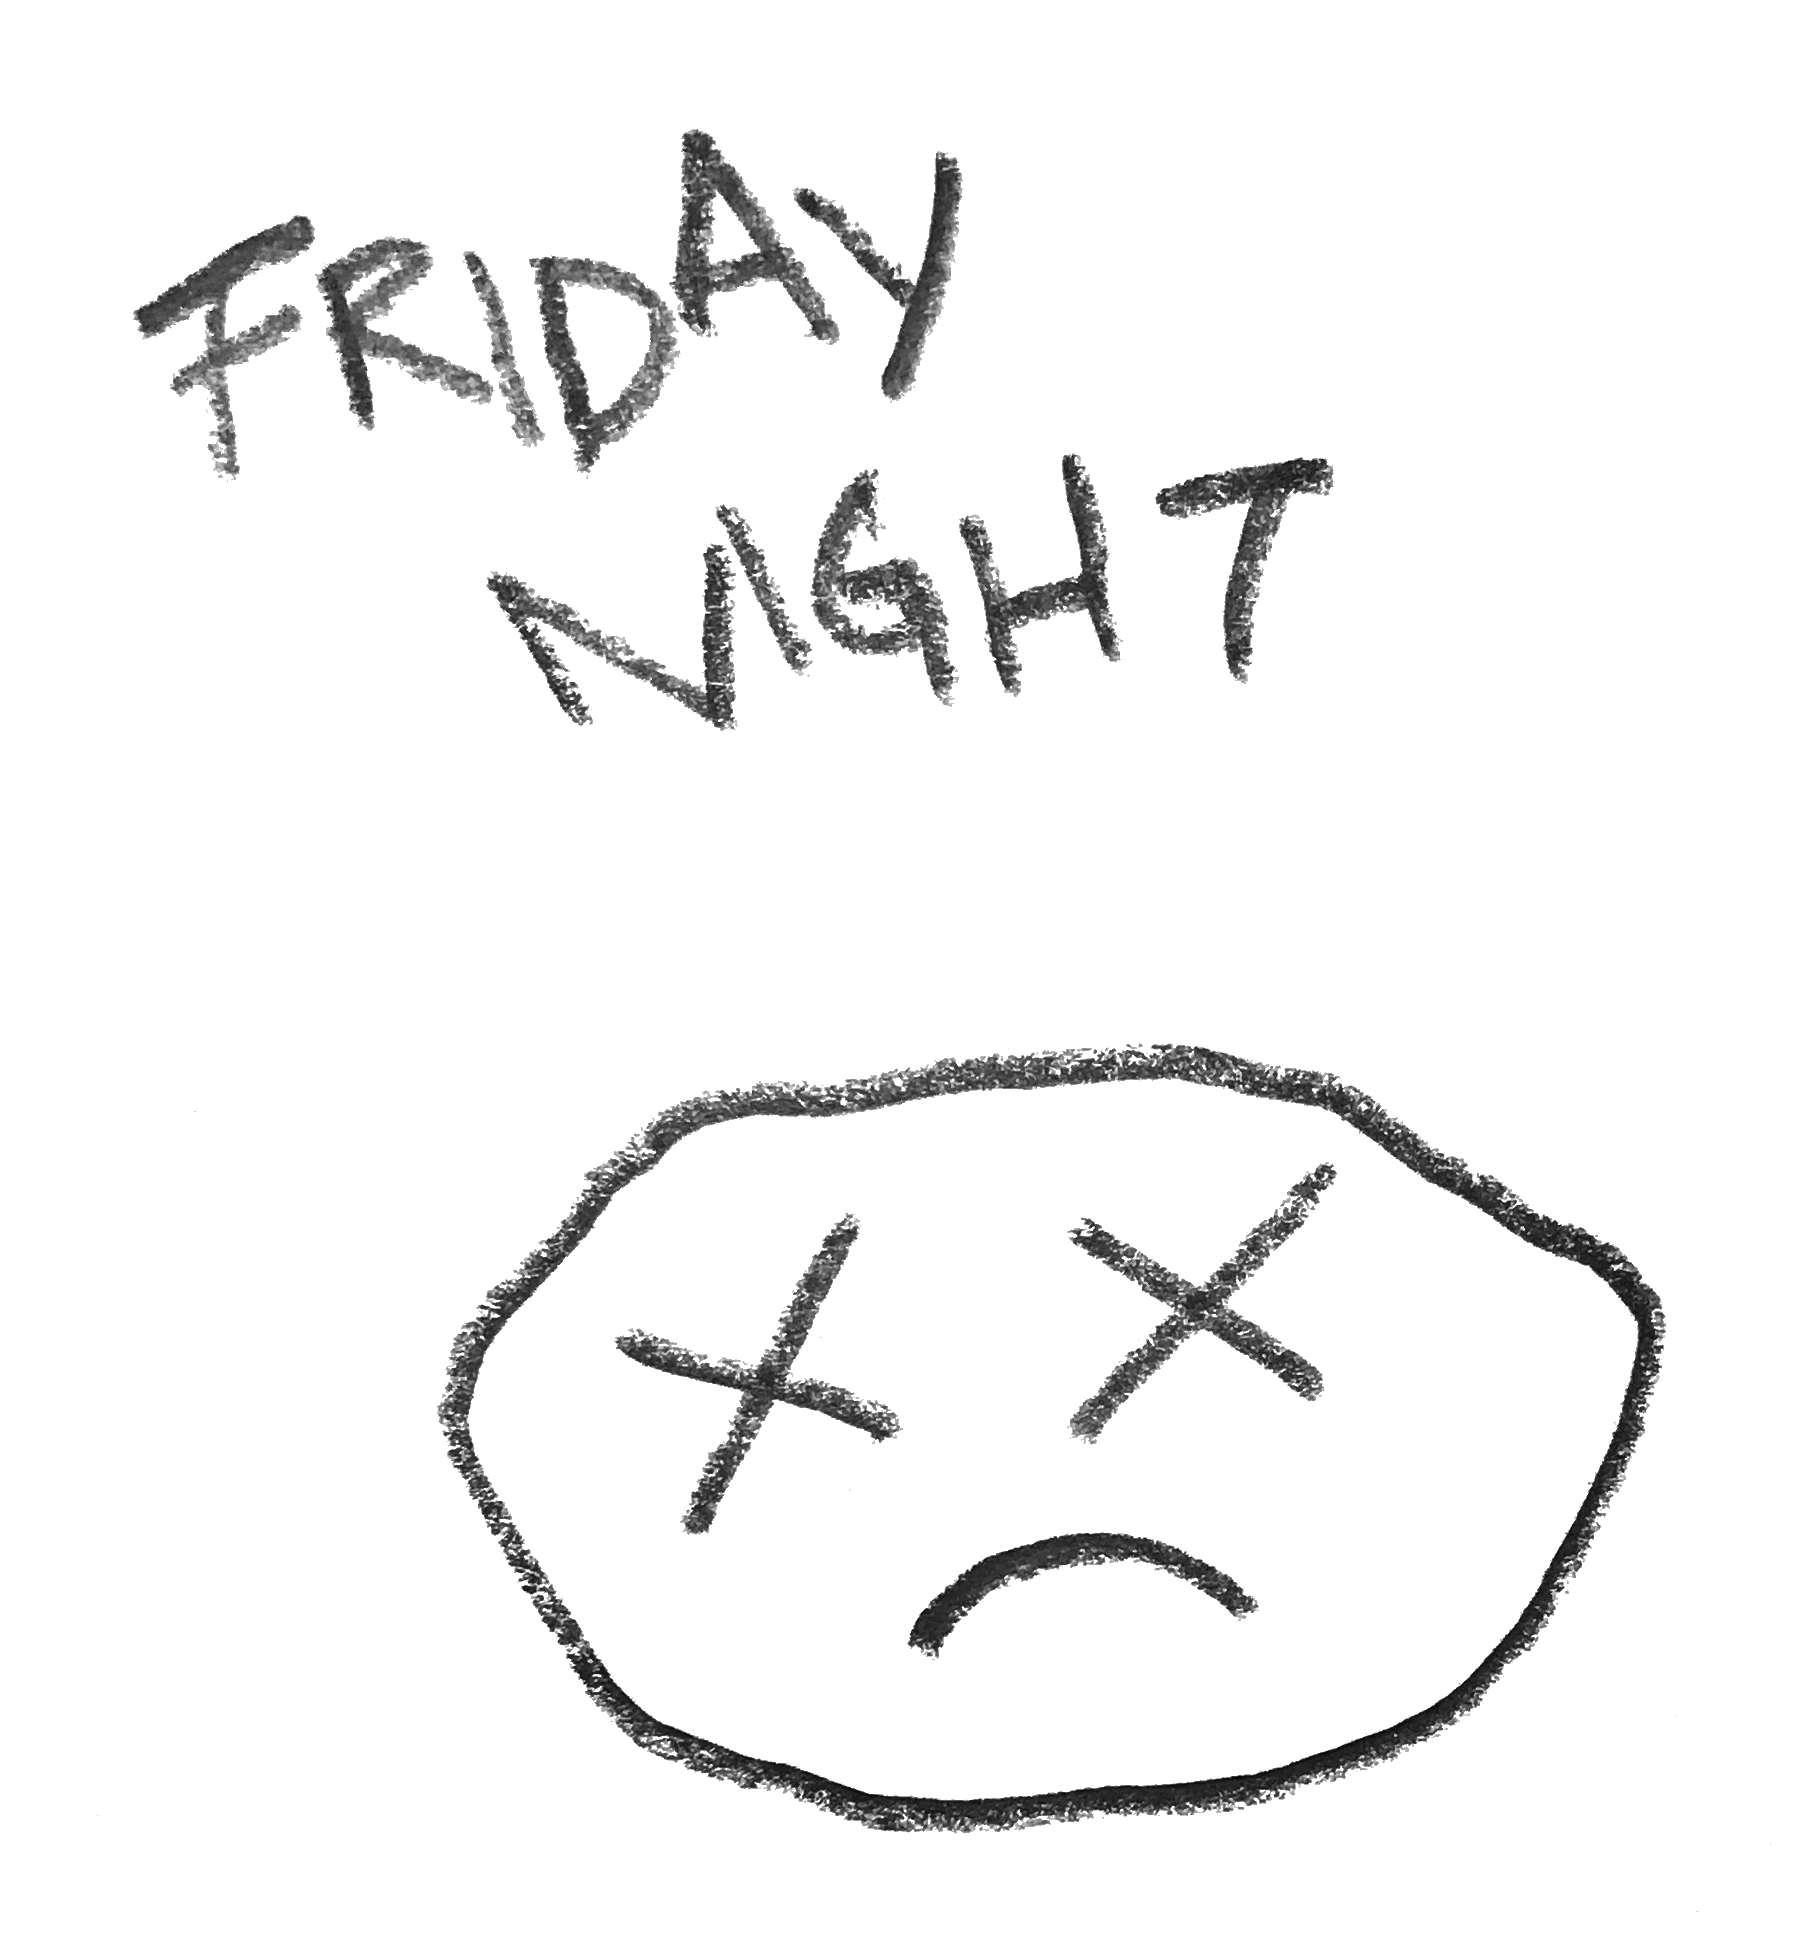 FRIDAY
NIGHT